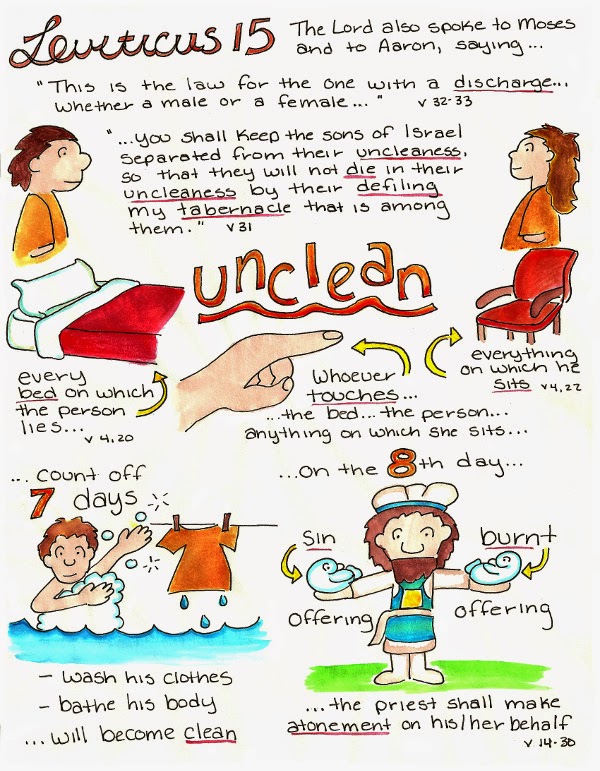 Leviticus 15
The Lord also spoke to Moses
and to Aaron, saying...
"This is the law for the one with a discharge...
whether a male or a female..." v 32-33
"...you shall keep the sons of Israel
separated from their uncleaness,
so that they will not die in their
uncleaness by their defiling
my tabernacle that is among
them." v 31
unclean
every
bed on which
the person
lies...
v 4,20
Whoever
touches...
...the bed...the person...
anything on which she sits...
everything
on which he
sits v 4,22
...count off
7 days
- wash his clothes
- bathe his body
...will become clean
...on the 8th day...
sin
offering
burnt
offering
...the priest shall make
atonement on his/her behalf
v 14-30